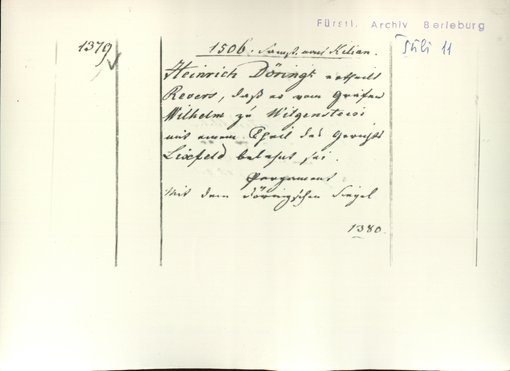 Fürstl. Archiv Berleburg
1379
1506. Samst. nach Kilian.
Juli 11
Heinrich Döring's ertheilt
Revers, daß er vom Grafen
Wilhelm zu Witgenstein
mit einem Theil des Gerichts
Lixfeld belehnt sei.
Pergament
Mit dem Döringschen Siegel
1380